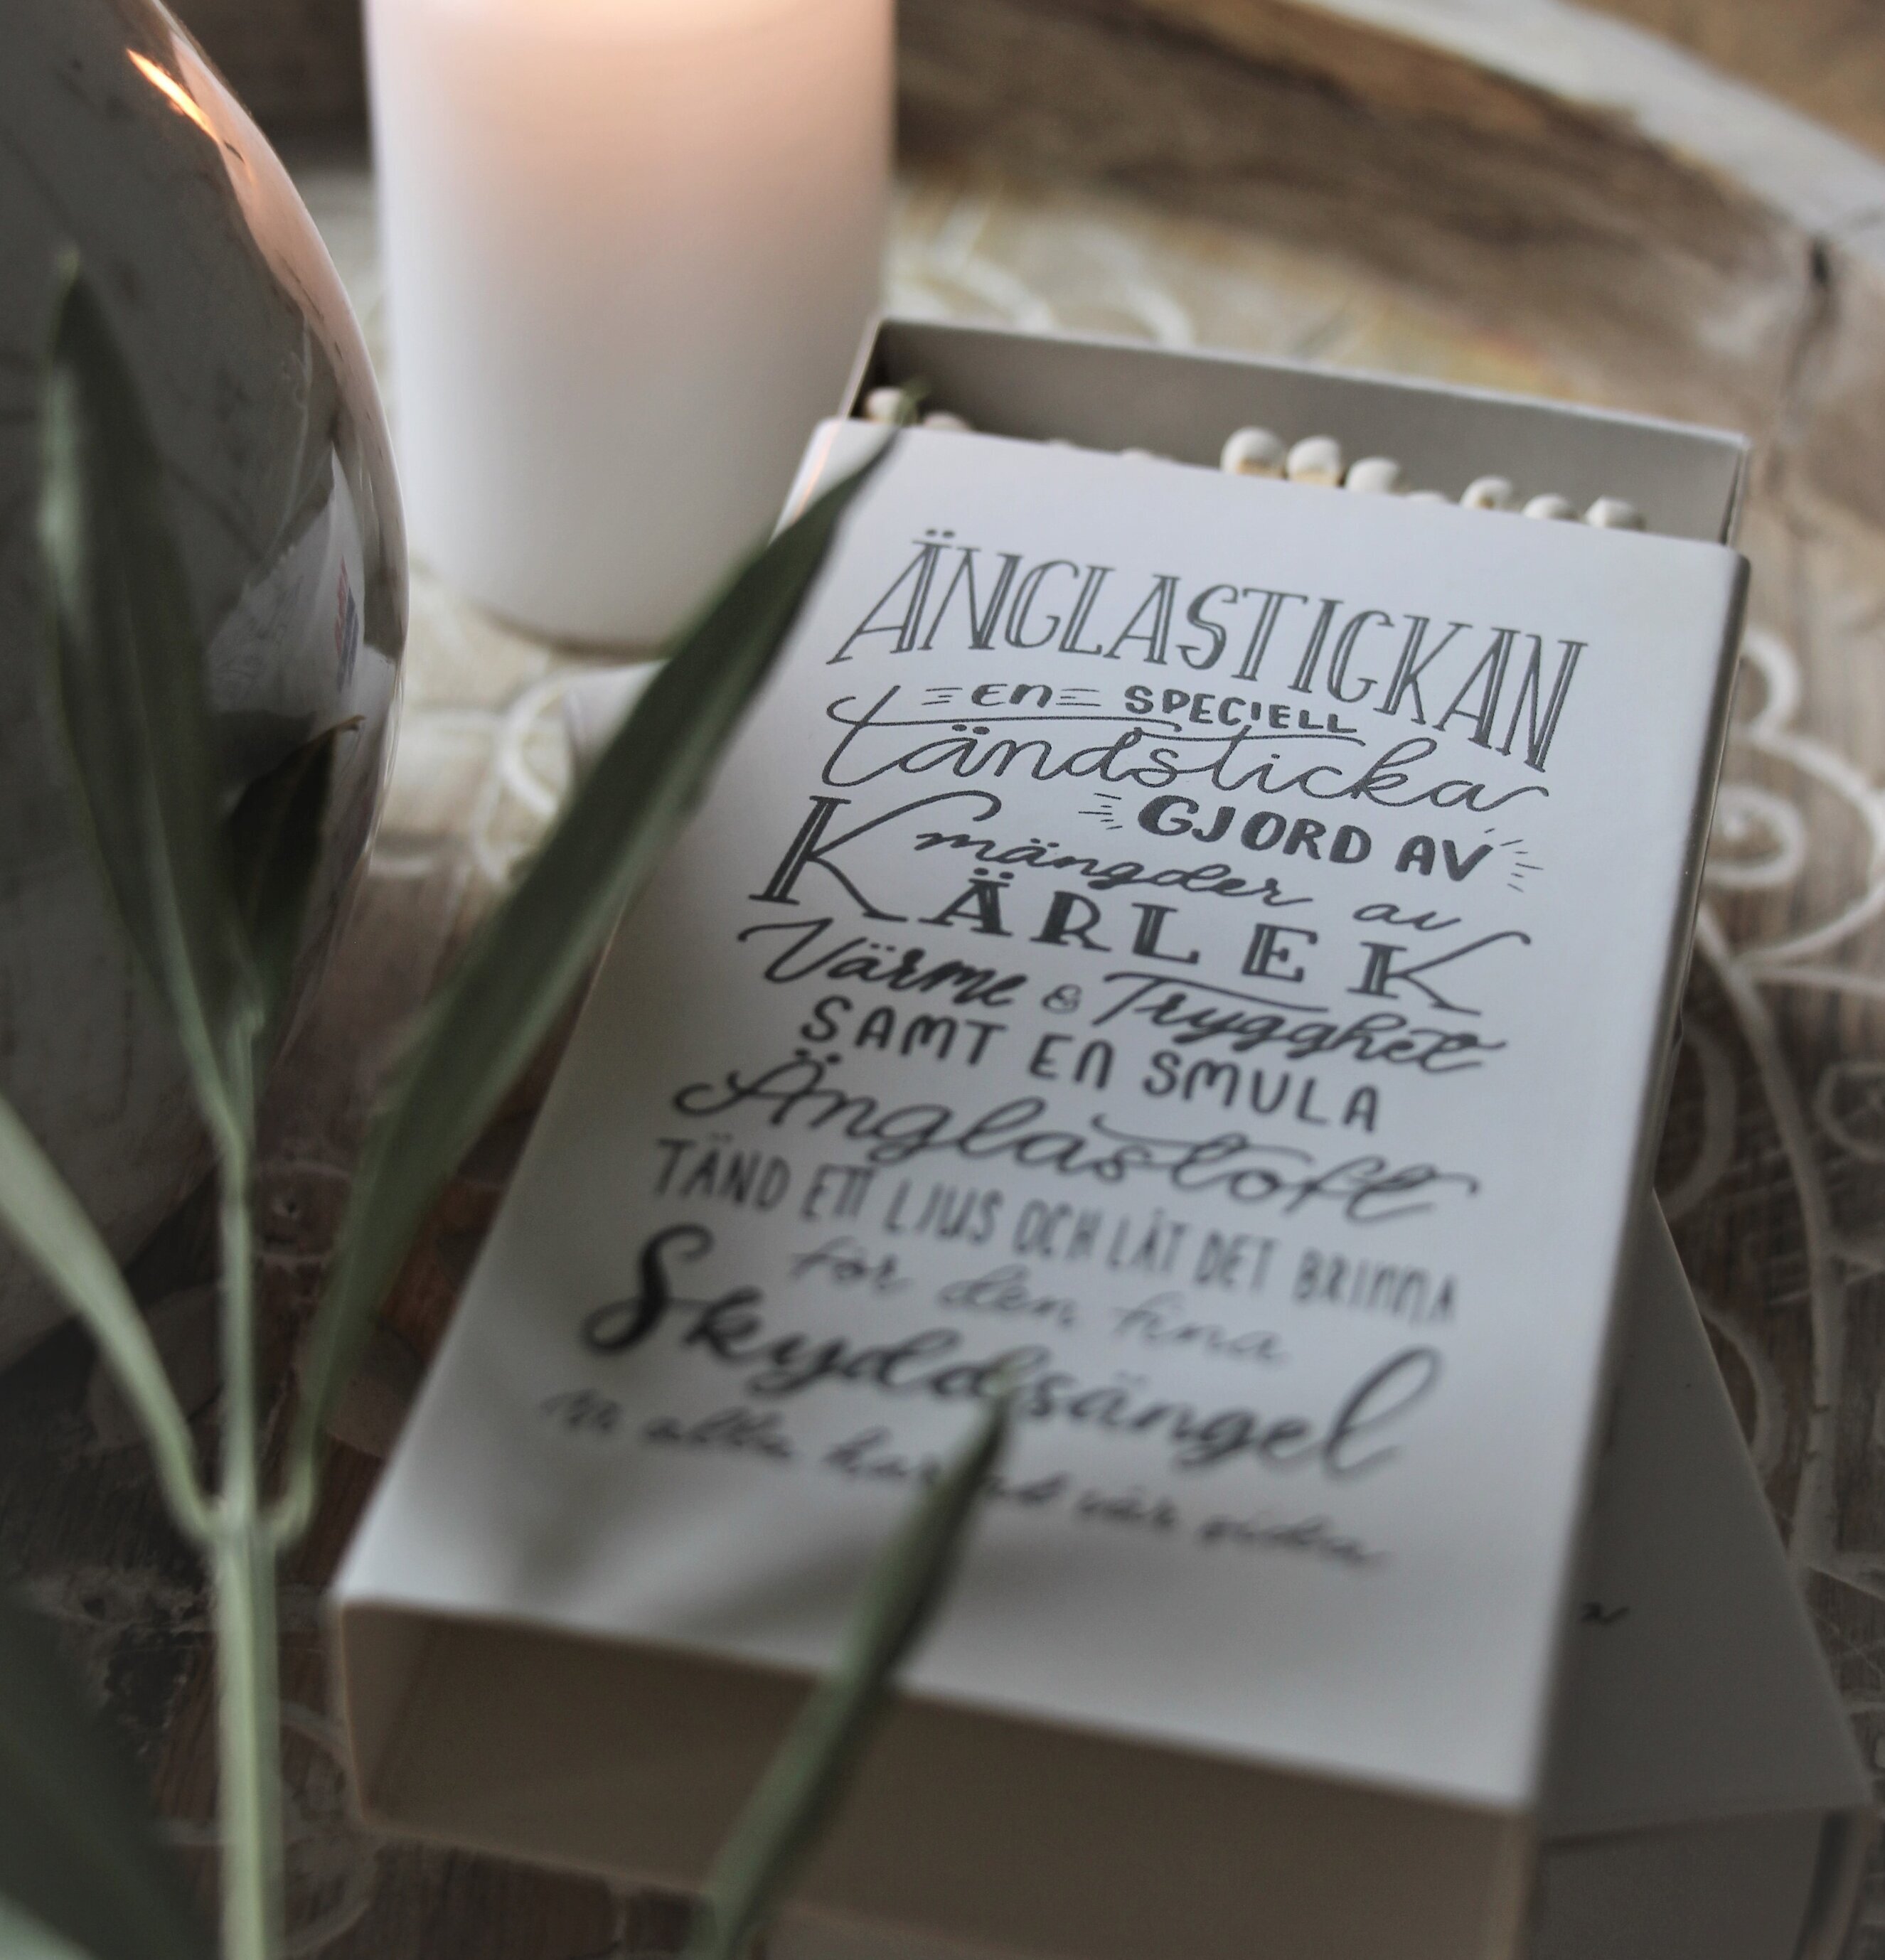 ÄNGLASTICKAN
en SPECIELL
tändsticka
GJORD AV
mängder av
KÄRLEK
Värme & Trygghet
SAMT EN SMULA
Änglastoft
TÄND ETT LJUS OCH LÅT DET BRINNA
för den fina
Skyddsängel
Vi alla har vid vår sida